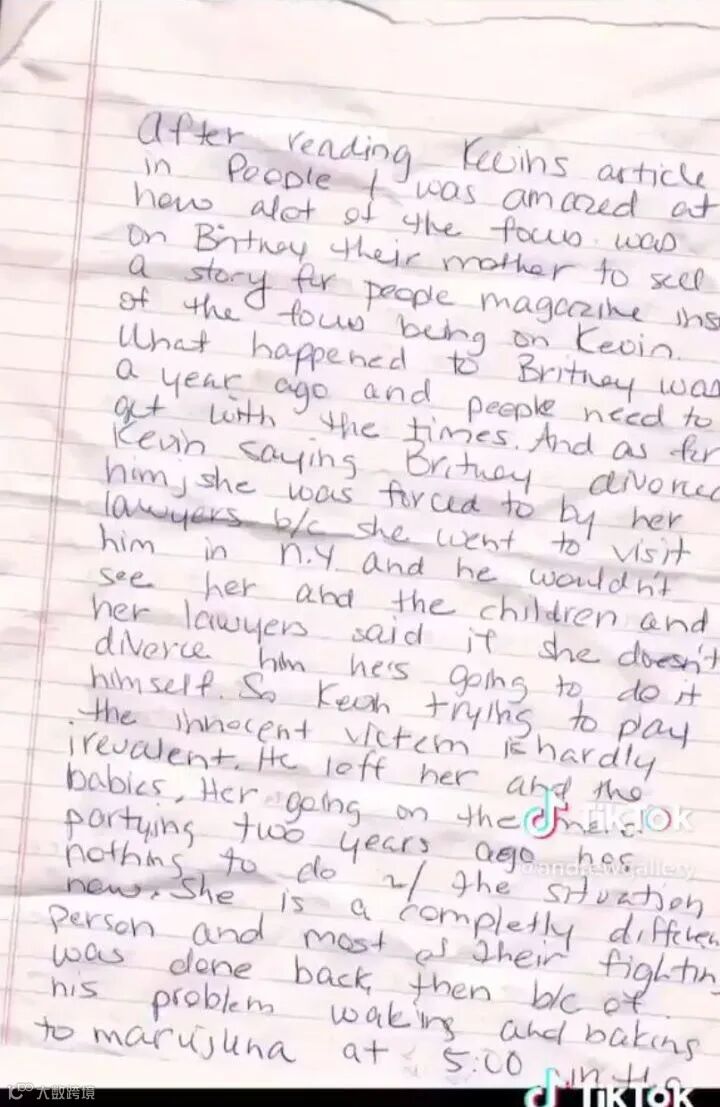 After reading Kevins article
in People I was amazed at
how alot of the focus was
on Britney their mother to sell
a story for people magazine ins
of the focus being on Kevin.
What happened to Britney was
a year ago and people need to
get with the times. And as for
Kevin saying Britney divorced
him, she was forced to by her
lawyers b/c she went to visit
him in N.Y. and he wouldn't
see her and the children and
her lawyers said if she doesn't
diverce him he's going to do it
himself. So Kevin trying to play
the innocent victem is hardly
irevalent. He left her and the
babies. Her going on the
partying two years ago has
TikTok
@andrewgallery
nothing to do w/ the situation
now. She is a completly differen
person and most of their fightin
was done back then b/c of
his problem waking and baking
to marujuna at 5:00 in the
大数跨境
TikTok